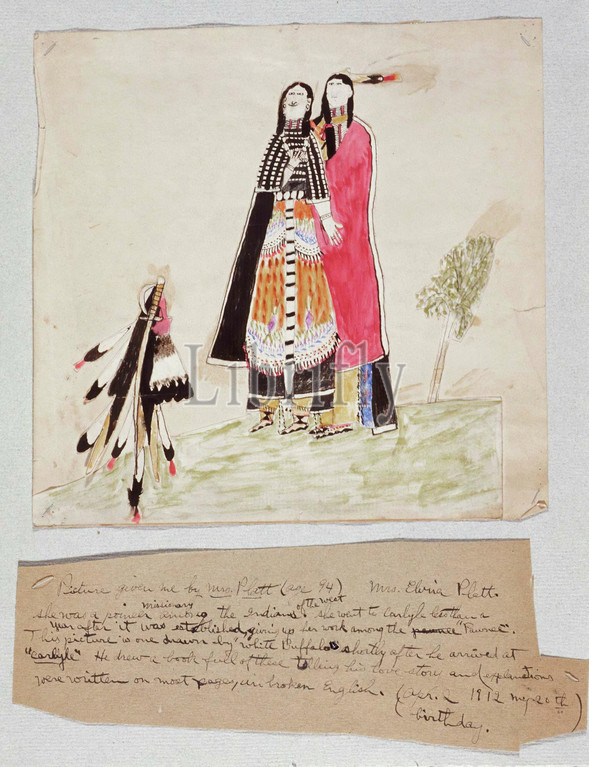 Librifly
Picture given me by Mrs. Platt (age 94) Mrs. Elvira Platt.
missionary of the west
she was a pioneer among the Indians. she went to Carlyle
year after it was established, giving up her work among the "Pawnee".
This picture is one drawn by "white Buffalo" shortly after he arrived at
"Carlyle" He drew a book full of these telling his love story and explanations
were written on most pages, in broken English. (Apr. 2 1912 my 20th
birthday.)